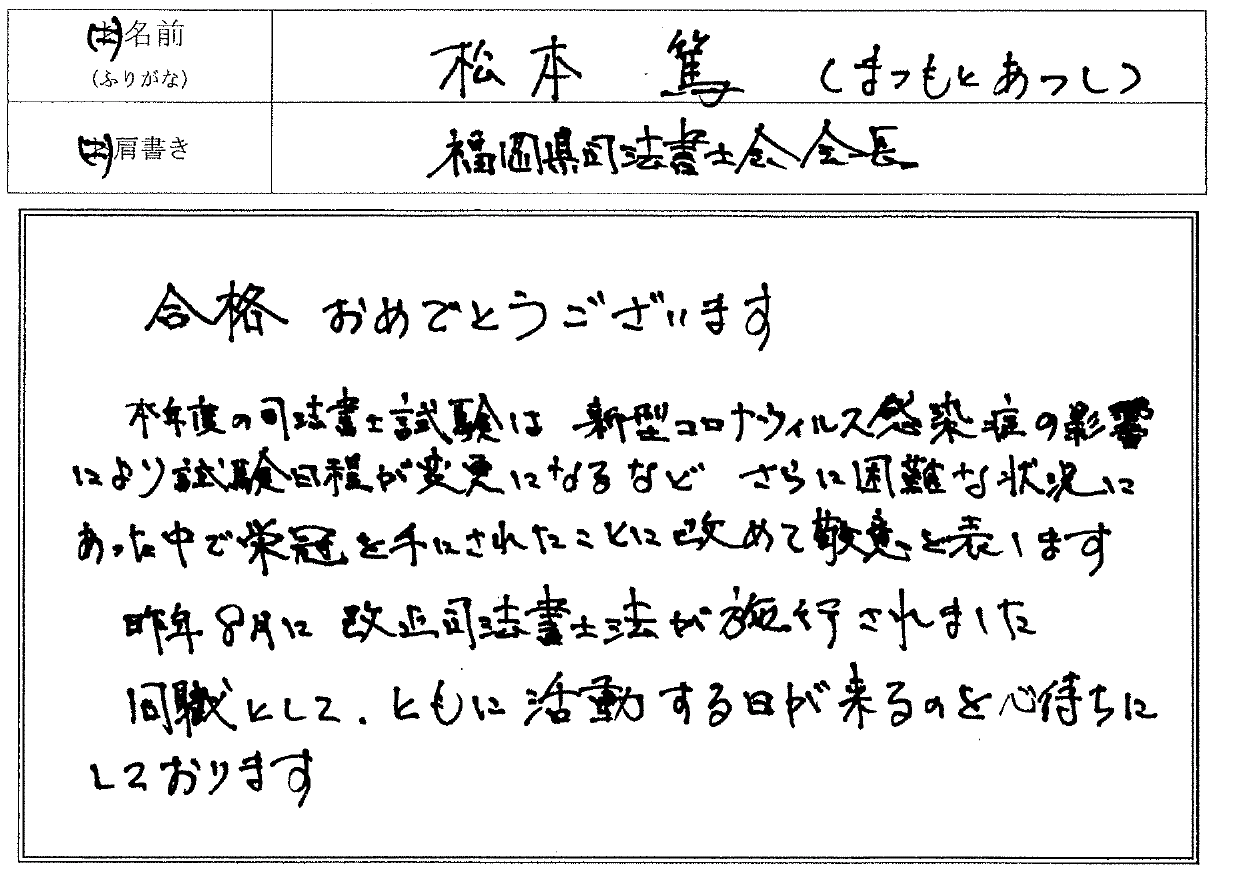 お名前
(ふりがな)
松本 篤 (まつもとあつし)
お肩書き
福岡県司法書士会会長
合格 おめでとうございます
本年度の司法書士試験は 新型コロナウィルス感染症の影響
により試験日程が変更になるなど さらに困難な状況に
あった中で栄冠を手にされたことに改めて敬意を表します
昨年8月に 改正司法書士法が施行されました
同職として、ともに活動する日が来るのを心待ちに
しております